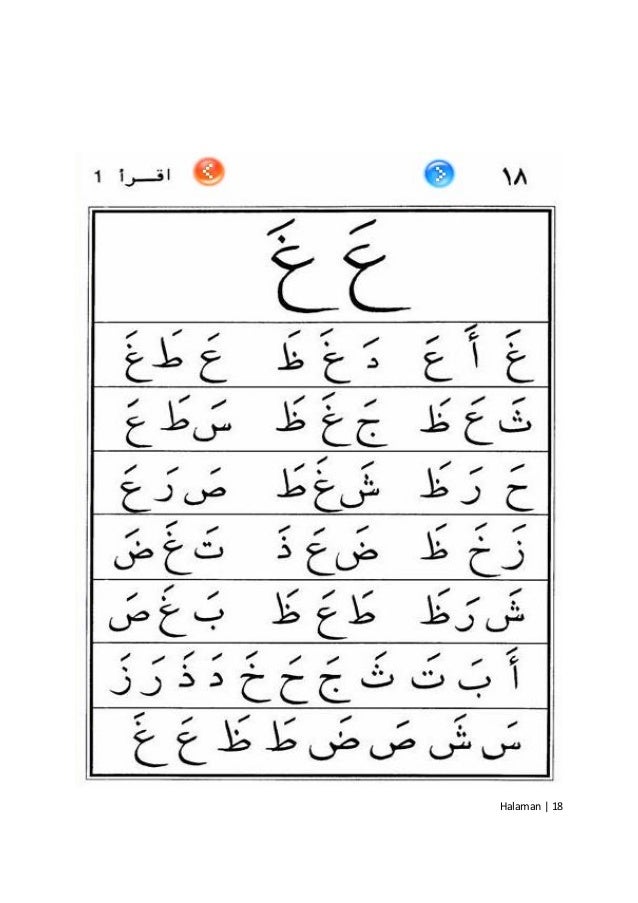 ١٨ اقــرأ 1
عَ غَ
غَ أَ عَ دَ غَ ظَ عَ طَ غَ
ثَ عَ ظَ جَ غَ ظَ سَ طَ عَ
حَ رَ ظَ شَ غَ طَ صَ رَ عَ
زَ خَ ظَ ضَ عَ ذَ تَ غَ ضَ
شَ رَ ظَ طَ عَ ظَ بَ غَ صَ
أَ بَ تَ ثَ جَ حَ خَ دَ ذَ رَ زَ
سَ شَ صَ ضَ طَ ظَ عَ غَ
Halaman | 18